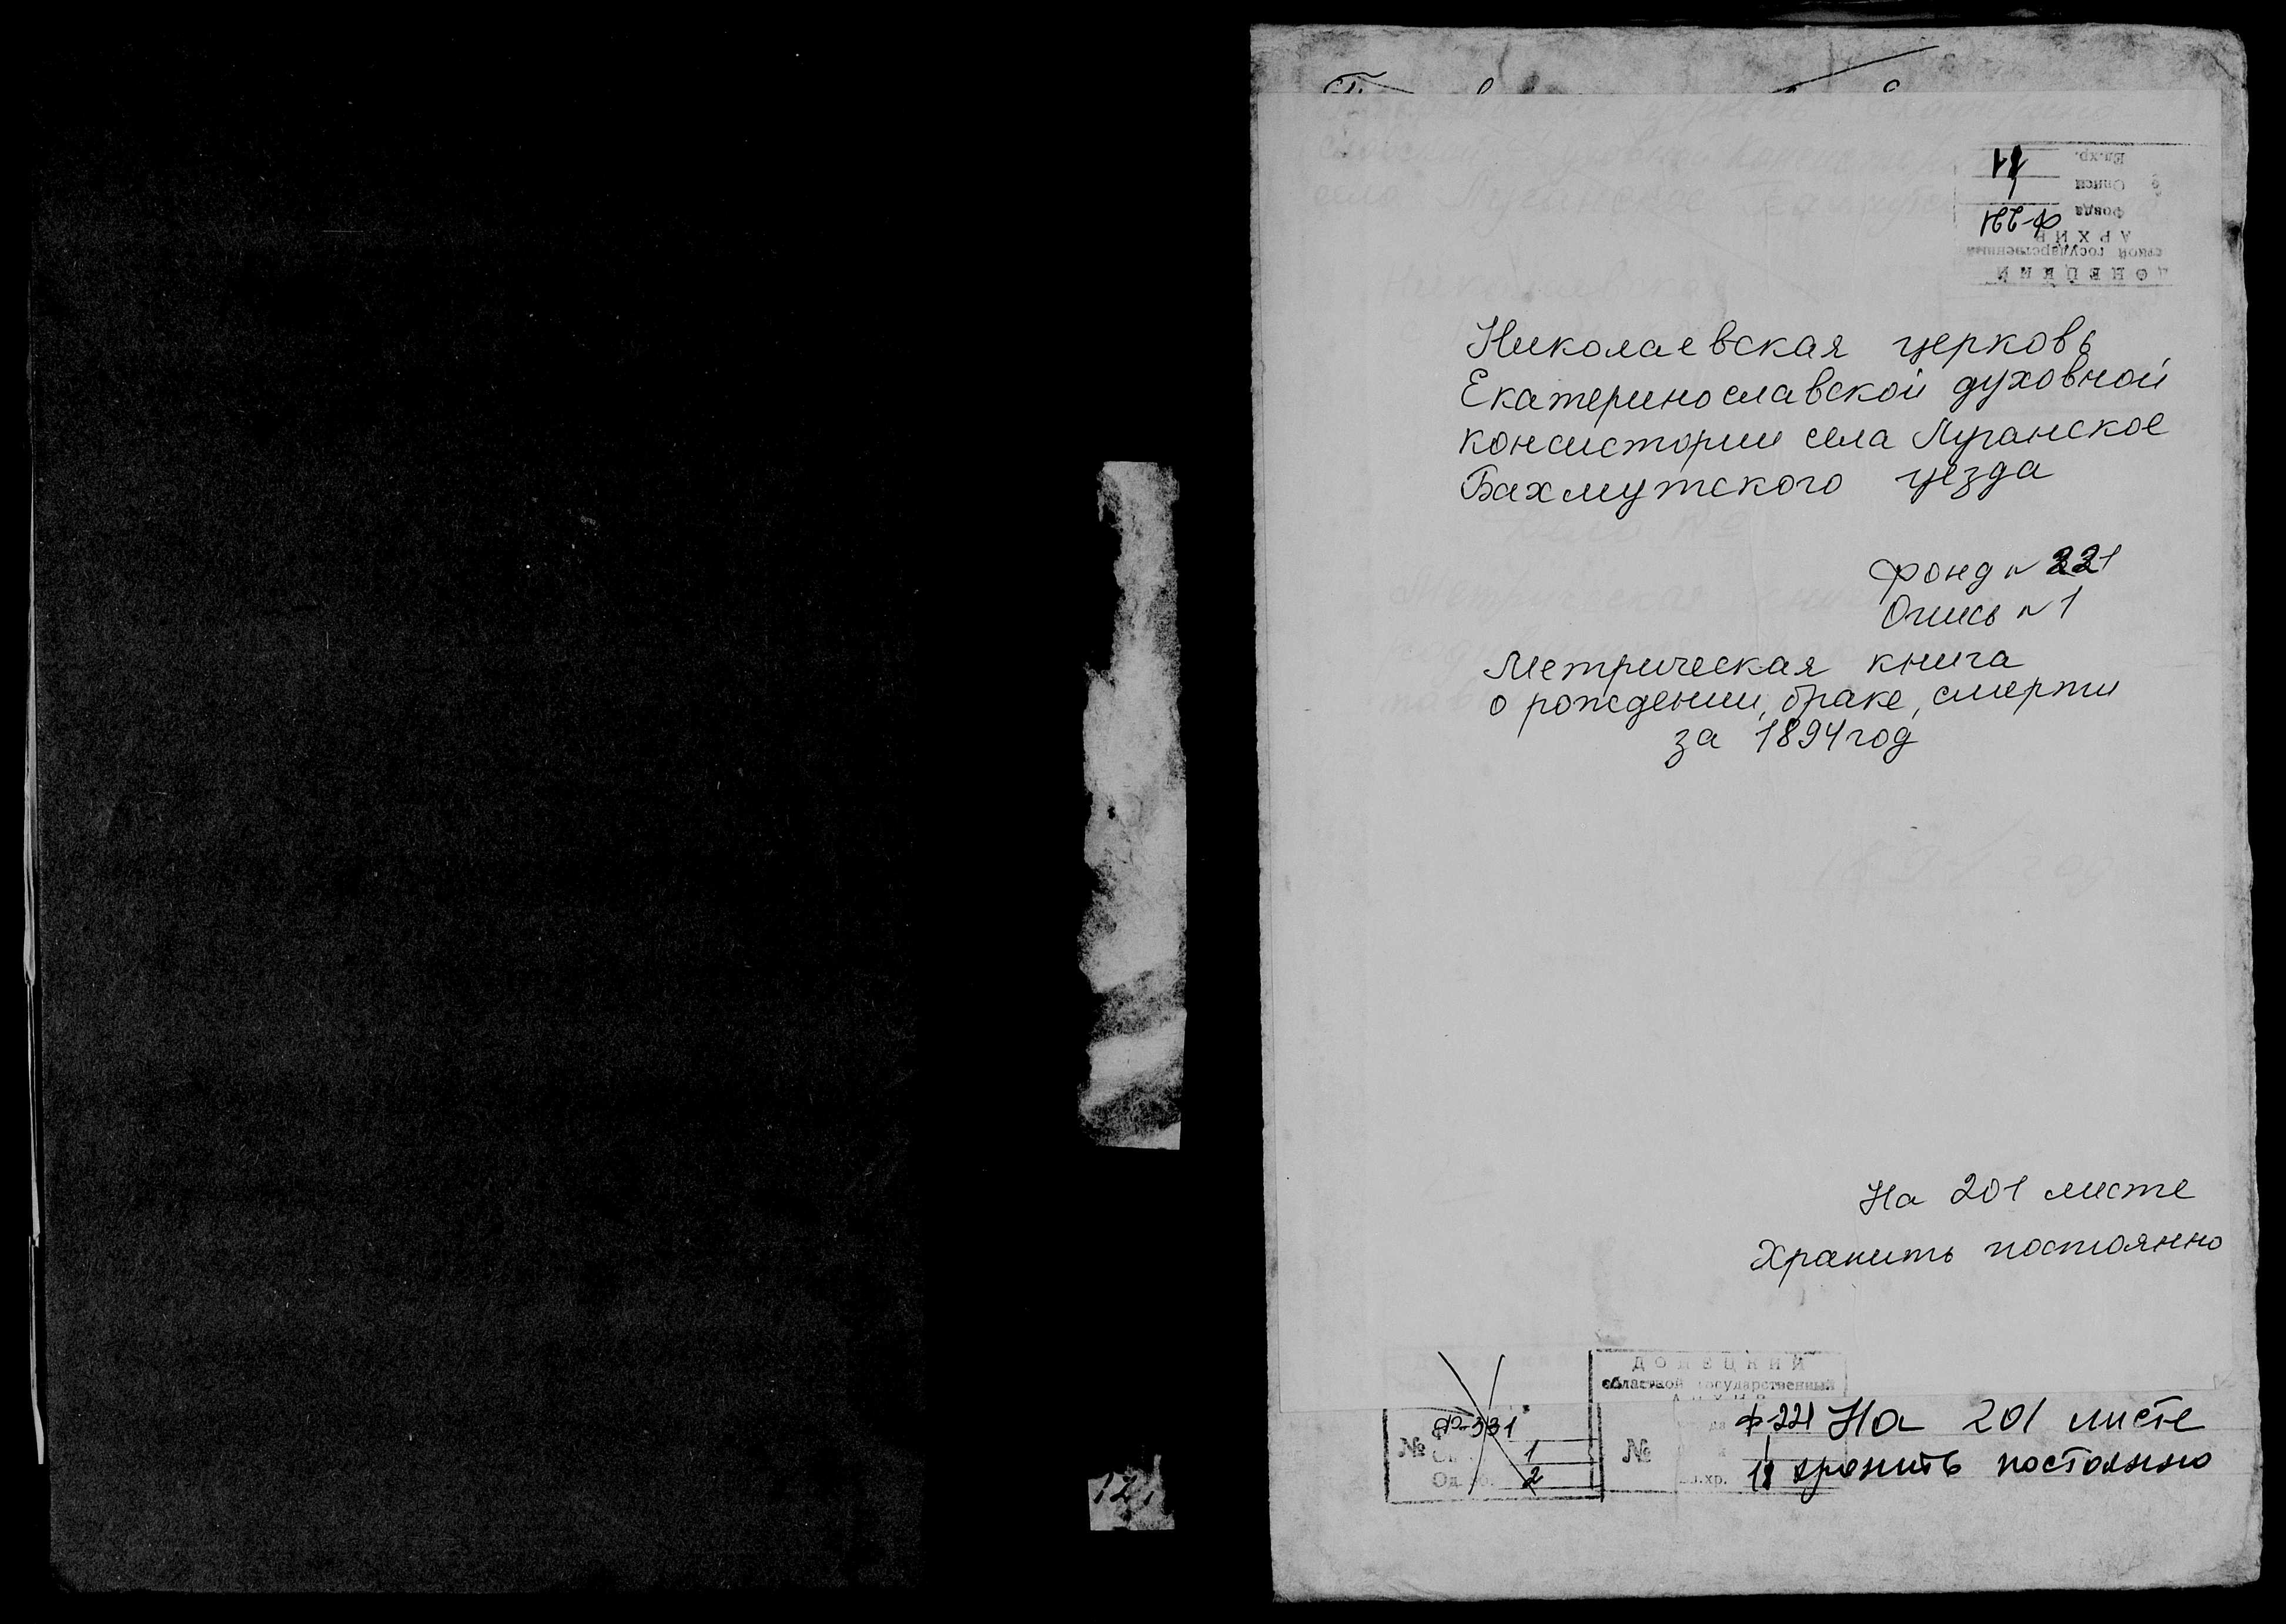 Николаевская церковь
Екатеринославской духовной
консистории села Луганское
Бахмутского уезда
Фонд № 221
Опись № 1
Метрическая книга
о рождении, браке, смерти
за 1894 год
На 201 листе
Хранить постоянно
ДОНЕЦКИЙ
областной государственный
АРХИВ
№
1
2
№
ф-221
1
На 201 листе
хранить постоянно
ДОНЕЦКИЙ
государственный
АРХИВ
Фонда ф-221
Описи 1
Ед.хр.